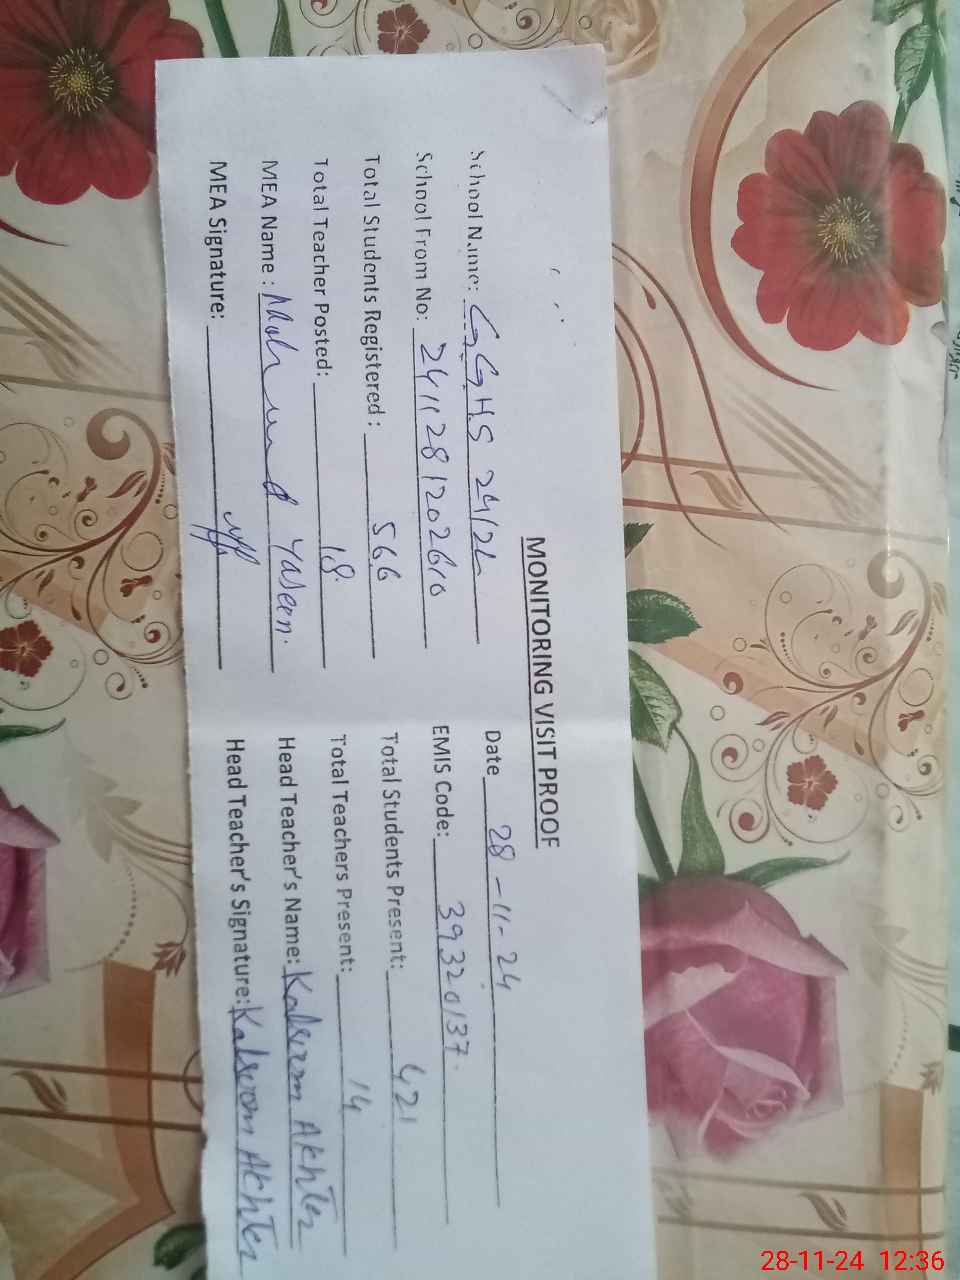 MONITORING VISIT PROOF
School Name: GGHS 24/2L Date 28-11-24
School From No: 2411281202610 EMIS Code: 39320137.
Total Students Registered: 566 Total Students Present: 421
Total Teacher Posted: 18 Total Teachers Present: 14
MEA Name: Mahmud Yaseen. Head Teacher's Name: Kalsoom Akhter
MEA Signature: Head Teacher's Signature: Kalsoom Akhter
28-11-24 12:36